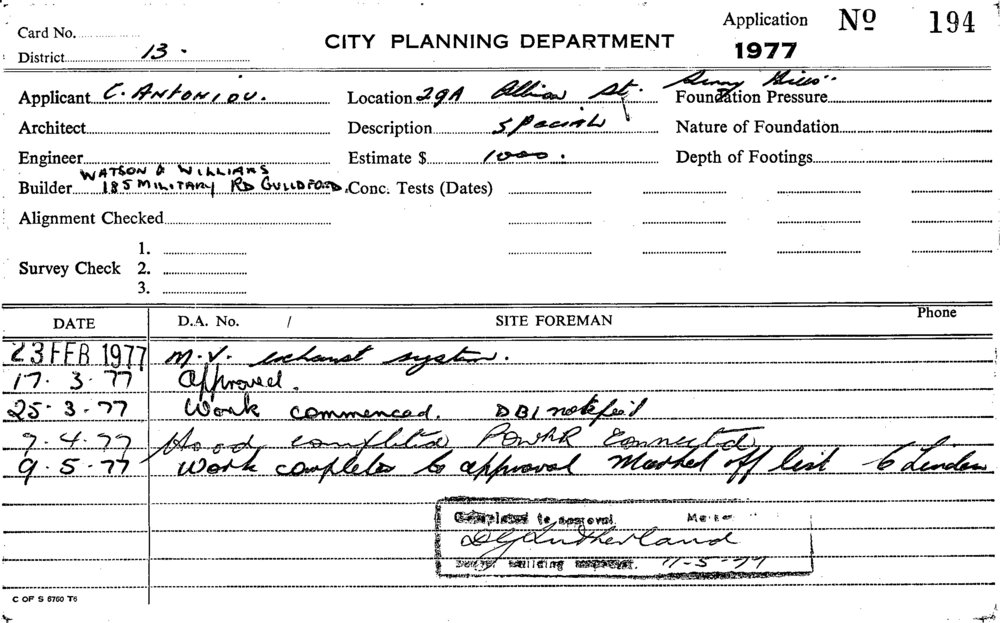 Card No.
District 13.
CITY PLANNING DEPARTMENT
Application Nº 194
1977
Applicant C. ANTONIOU.
Location 29A Albion St. Surry Hills
Foundation Pressure
Architect
Description SPECIAL
Nature of Foundation
Engineer
Estimate $ 1000.
Depth of Footings
WATSON & WILLIAMS
Builder 185 MILITARY RD GUILDFORD.
Conc. Tests (Dates)
Alignment Checked
Survey Check
1.
2.
3.
DATE D.A. No. / SITE FOREMAN Phone
23 FEB 1977 M.V. exhaust system.
17. 3. 77 Approved.
25. 3. 77 Work commenced. DBI
7. 4. 77 Hood completed Power Connected
9. 5. 77 Work completed to approval Marked off list
Completed to approval.
DG Sutherland
building 11-5-77
C OF S 6760 T6